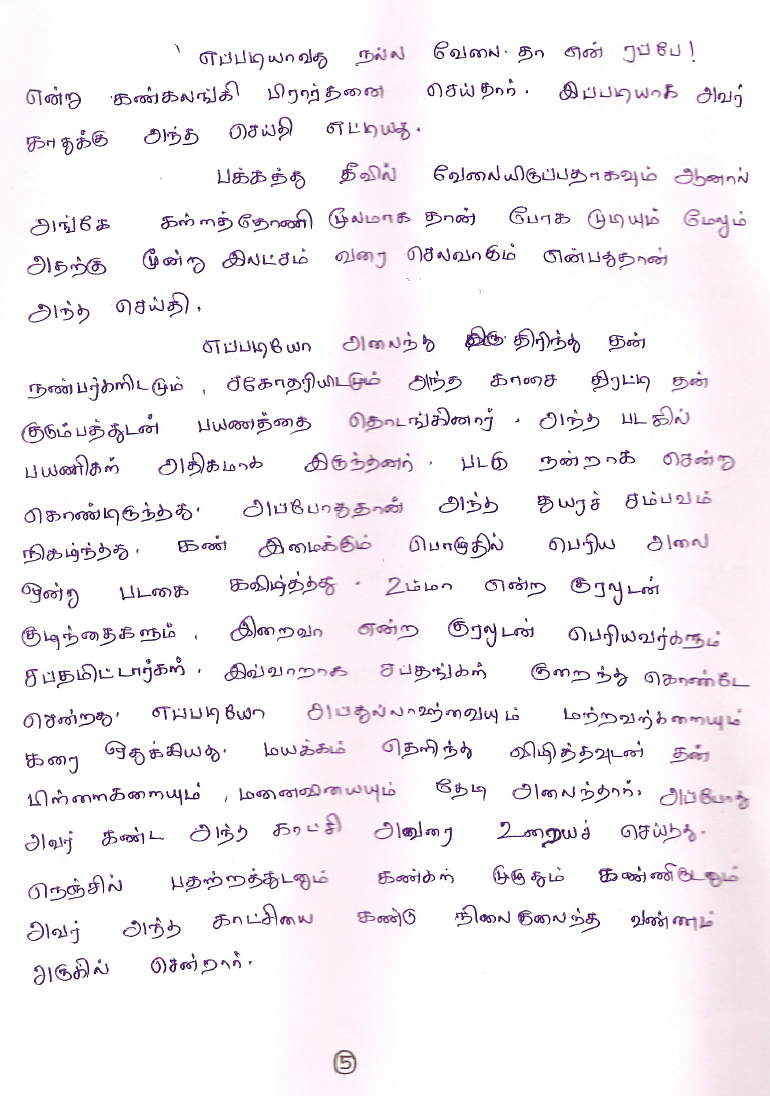 எப்படியாவது நல்ல வேலை தா என் ரப்பே!
என்று கண்கலங்கி பிரார்தனை செய்தார். இப்படியாக அவர்
காதுக்கு அந்த செய்தி எட்டியது.
பக்கத்து தீவில் வேலையிருப்பதாகவும் ஆனால்
அங்கே கள்ளத்தோணி மூலமாக தான் போக முடியும் மேலும்
அதற்கு மூன்று இலட்சம் வரை செலவாகும் என்பதுதான்
அந்த செய்தி.
எப்படியோ அலைந்து திரிந்து தன்
நண்பர்களிடமும், சகோதரியிடமும் அந்த காசை திரட்டி தன்
குடும்பத்துடன் பயணத்தை தொடங்கினார். அந்த படகில்
பயணிகள் அதிகமாக இருந்தனர். படகு நன்றாக சென்று
கொண்டிருந்தது. அப்போதுதான் அந்த துயரச் சம்பவம்
நிகழ்ந்தது. கண் இமைக்கும் பொழுதில் பெரிய அலை
ஒன்று படகை கவிழ்த்தது. உம்மா என்ற குரலுடன்
குழந்தைகளும், இறைவா என்ற குரலுடன் பெரியவர்களும்
சபதமிட்டார்கள். இவ்வாறாக சபதங்கள் குறைந்து கொண்டே
சென்றது. எப்படியோ அப்துல்லாஹ்வையும் மற்றவர்களையும்
கரை ஒதுக்கியது. மயக்கம் தெளிந்து விழித்தவுடன் தன்
பிள்ளைகளையும், மனைவியையும் தேடி அலைந்தார். அப்போது
அவர் கண்ட அந்த காட்சி அவரை உறையச் செய்தது.
நெஞ்சில் பதற்றத்துடனும் கண்கள் முழுதும் கண்ணீருடனும்
அவர் அந்த காட்சியை கண்டு நிலைகுலைந்த வண்ணம்
அருகில் சென்றார்.
5